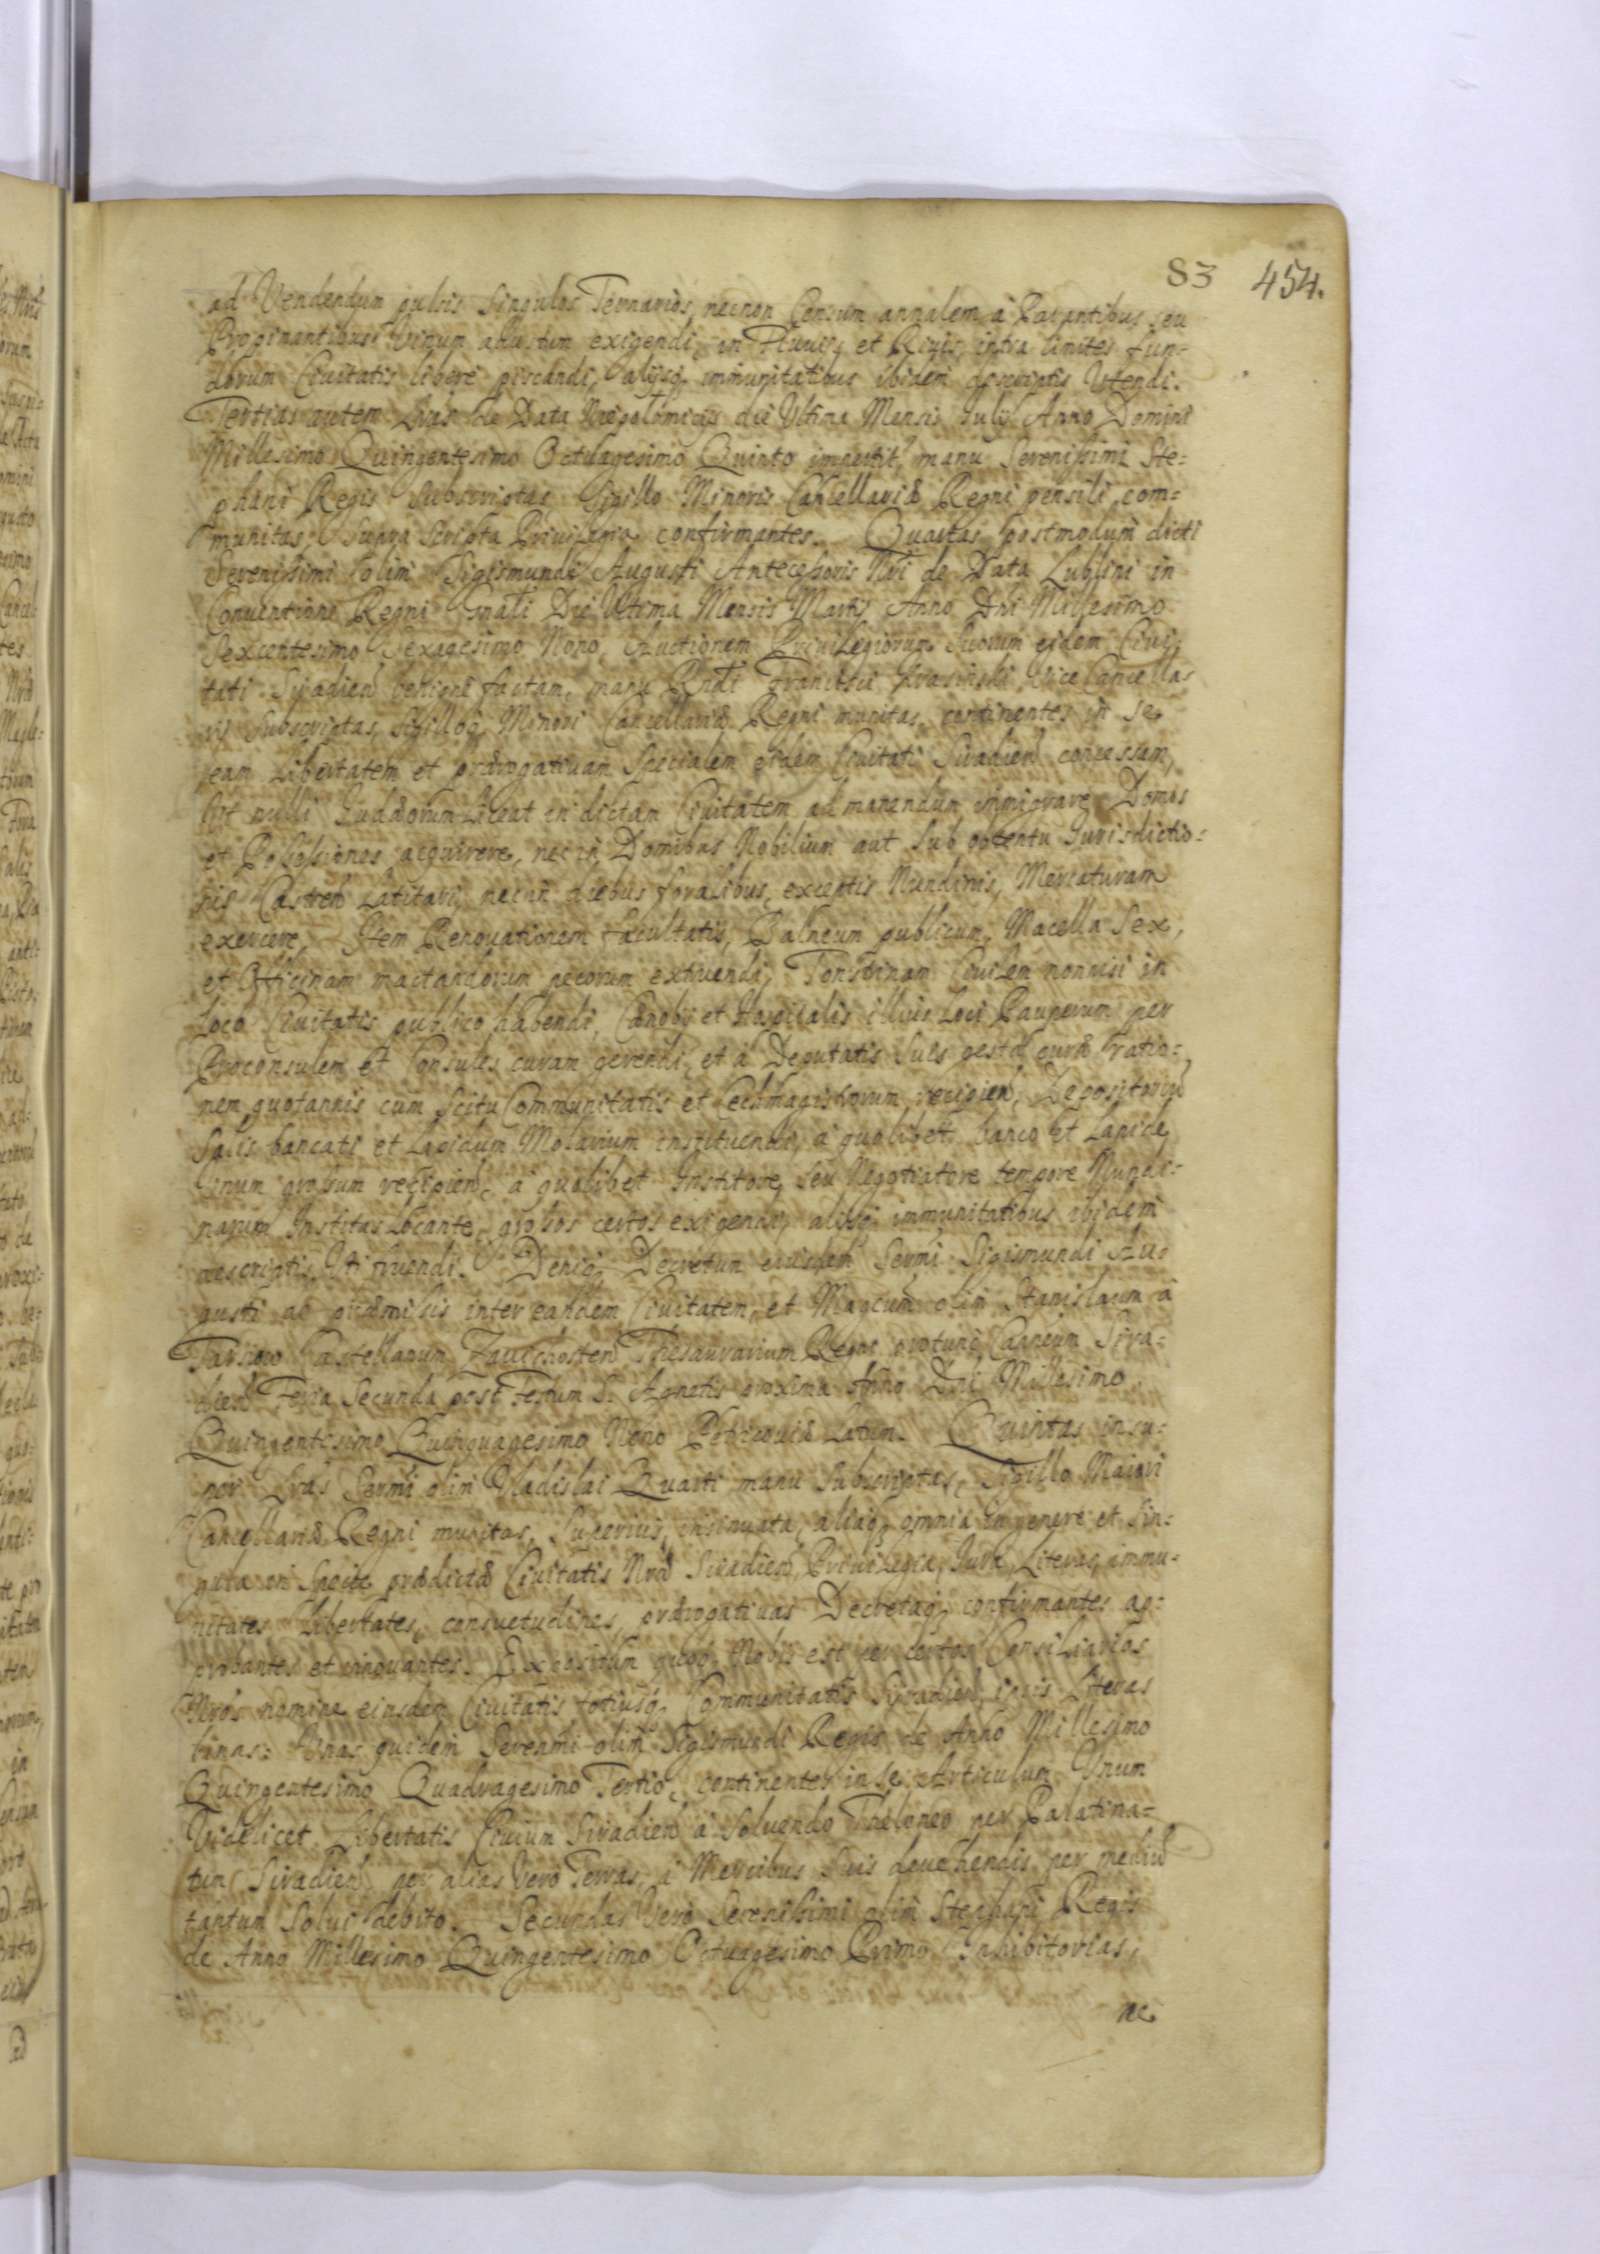 83 454.
ad Vendendum pulsis Singulos Ternarios, necnon Censum annalem à Parantibus seu
Propinantibus Vinum adustum exigendi, in Fluvijs et Rivis, intra limites fun-
dorum Civitatis liberè piscandi, alijsq, immunitatibus ibidem descriptis Utendi.
Tertias autem Lras de Data Niepolomicijs die Ultima Mensis Julij Anno Domini
Millesimo Quingentesimo Octuagesimo Quinto manu Serenissimi Ste-
phani Regis Subscriptas, Sigillo Minoris Cancellariæ Regni pensili com-
munitas, Supra Scripta Privilegia confirmantes. Quartas postmodum dicti
Serenissimi olim Sigismundi Augusti Antecessoris Nri de Data Lublini in
Conventione Regni Gnali Die Ultima Mensis Martij Anno Dni Millesimo
Sexcentesimo Sexagesimo Nono, Auctionem Privilegiorum Suorum eidem Civi-
tati Siradien benignè factam, manu Rndi Francisci Krasinski Vice Cancella-
rij Subscriptas, Sigilloq, Minori Cancellariæ Regni munitas, continentes in se
eam Libertatem et prærogativam Specialem eidem Civitati Siradien concessam,
Ut nulli Judæorum Liceat in dictam Civitatem ad manendum immigrare, Domos
et Possessiones acquirere, nec in Domibus Nobilium aut Sub obtentu Jurisdictio-
nis Castren Latitare, nec in diebus foralibus, exceptis Nundinis, Mercaturam
exercere, Item Renovationem facultatis, Balneum publicum, Macella Sex,
et Officinam mactandorum pecorum extruendi, Tonstrinam Civilem nonnisi in
Loco Civitatis publico habendi, Cænobij et Hospitalis illius Loci Pauperum per
Proconsulem et Consules curam gerendi, et à Deputatis Suis gestæ curæ ratio-
nem quotannis cum Scitu Communitatis et Cechmagistrorum recipien, Depositorium
Salis bancati et Lapidum Molarium instituendi, à quolibet banco et Lapide
unum grossum recipien, à quolibet Institore, Seu Negotiatore tempore Nundi-
narum Institas Locante, grossos certos exigendi, alijsq, immunitatibus ibidem
descriptis Uti fruendi. Deniq, Decretum eiusdem Sermi Sigismundi Au-
gusti ac præmissis inter eandem Civitatem, et Magcum olim Stanislaum à
Tarnow Castellanum Zavichosten Thesaurarium Regni protunc Capneum Sira-
dien Feria Secunda post Festum S. Agnetis proxima Anno Dni Millesimo
Quingentesimo Quinquagesimo Nono Petricoviæ Latum. Quintas insu-
per Lras Sermi olim Vladislai Quarti manu Subscriptas, Sigillo Maiori
Cancellariæ Regni munitas, Superius insinuata, aliaq, omnia in genere et Sin-
gula in Specie prædictæ Civitatis Nræ Siradien, Privilegia, Jura, Literas, immu-
nitates Libertates, consuetudines, prærogativas Decretaq, confirmantes ap-
probantes et innovantes. Expositum quoq, Nobis est per certos Consiliarios
Nros nomine eiusdem Civitatis totiusq, Communitatis Siradien, ipsis Literas
binas: Unas quidem Serenmi olim Sigismundi Regis de Anno Millesimo
Quingentesimo Quadragesimo Tertio, continentes in se Articulum Unum
Videlicet Libertatis Civium Siradien à Solvendo Theloneo per Palatina-
tum Siradien, per alias verò Terras, à Mercibus Suis devehendis per mediū
tantum Solui debito. Secundas verò Serenissimi olim Stephani Regis
de Anno Millesimo Quingentesimo Octuagesimo Primo Inhibitorias,
ne